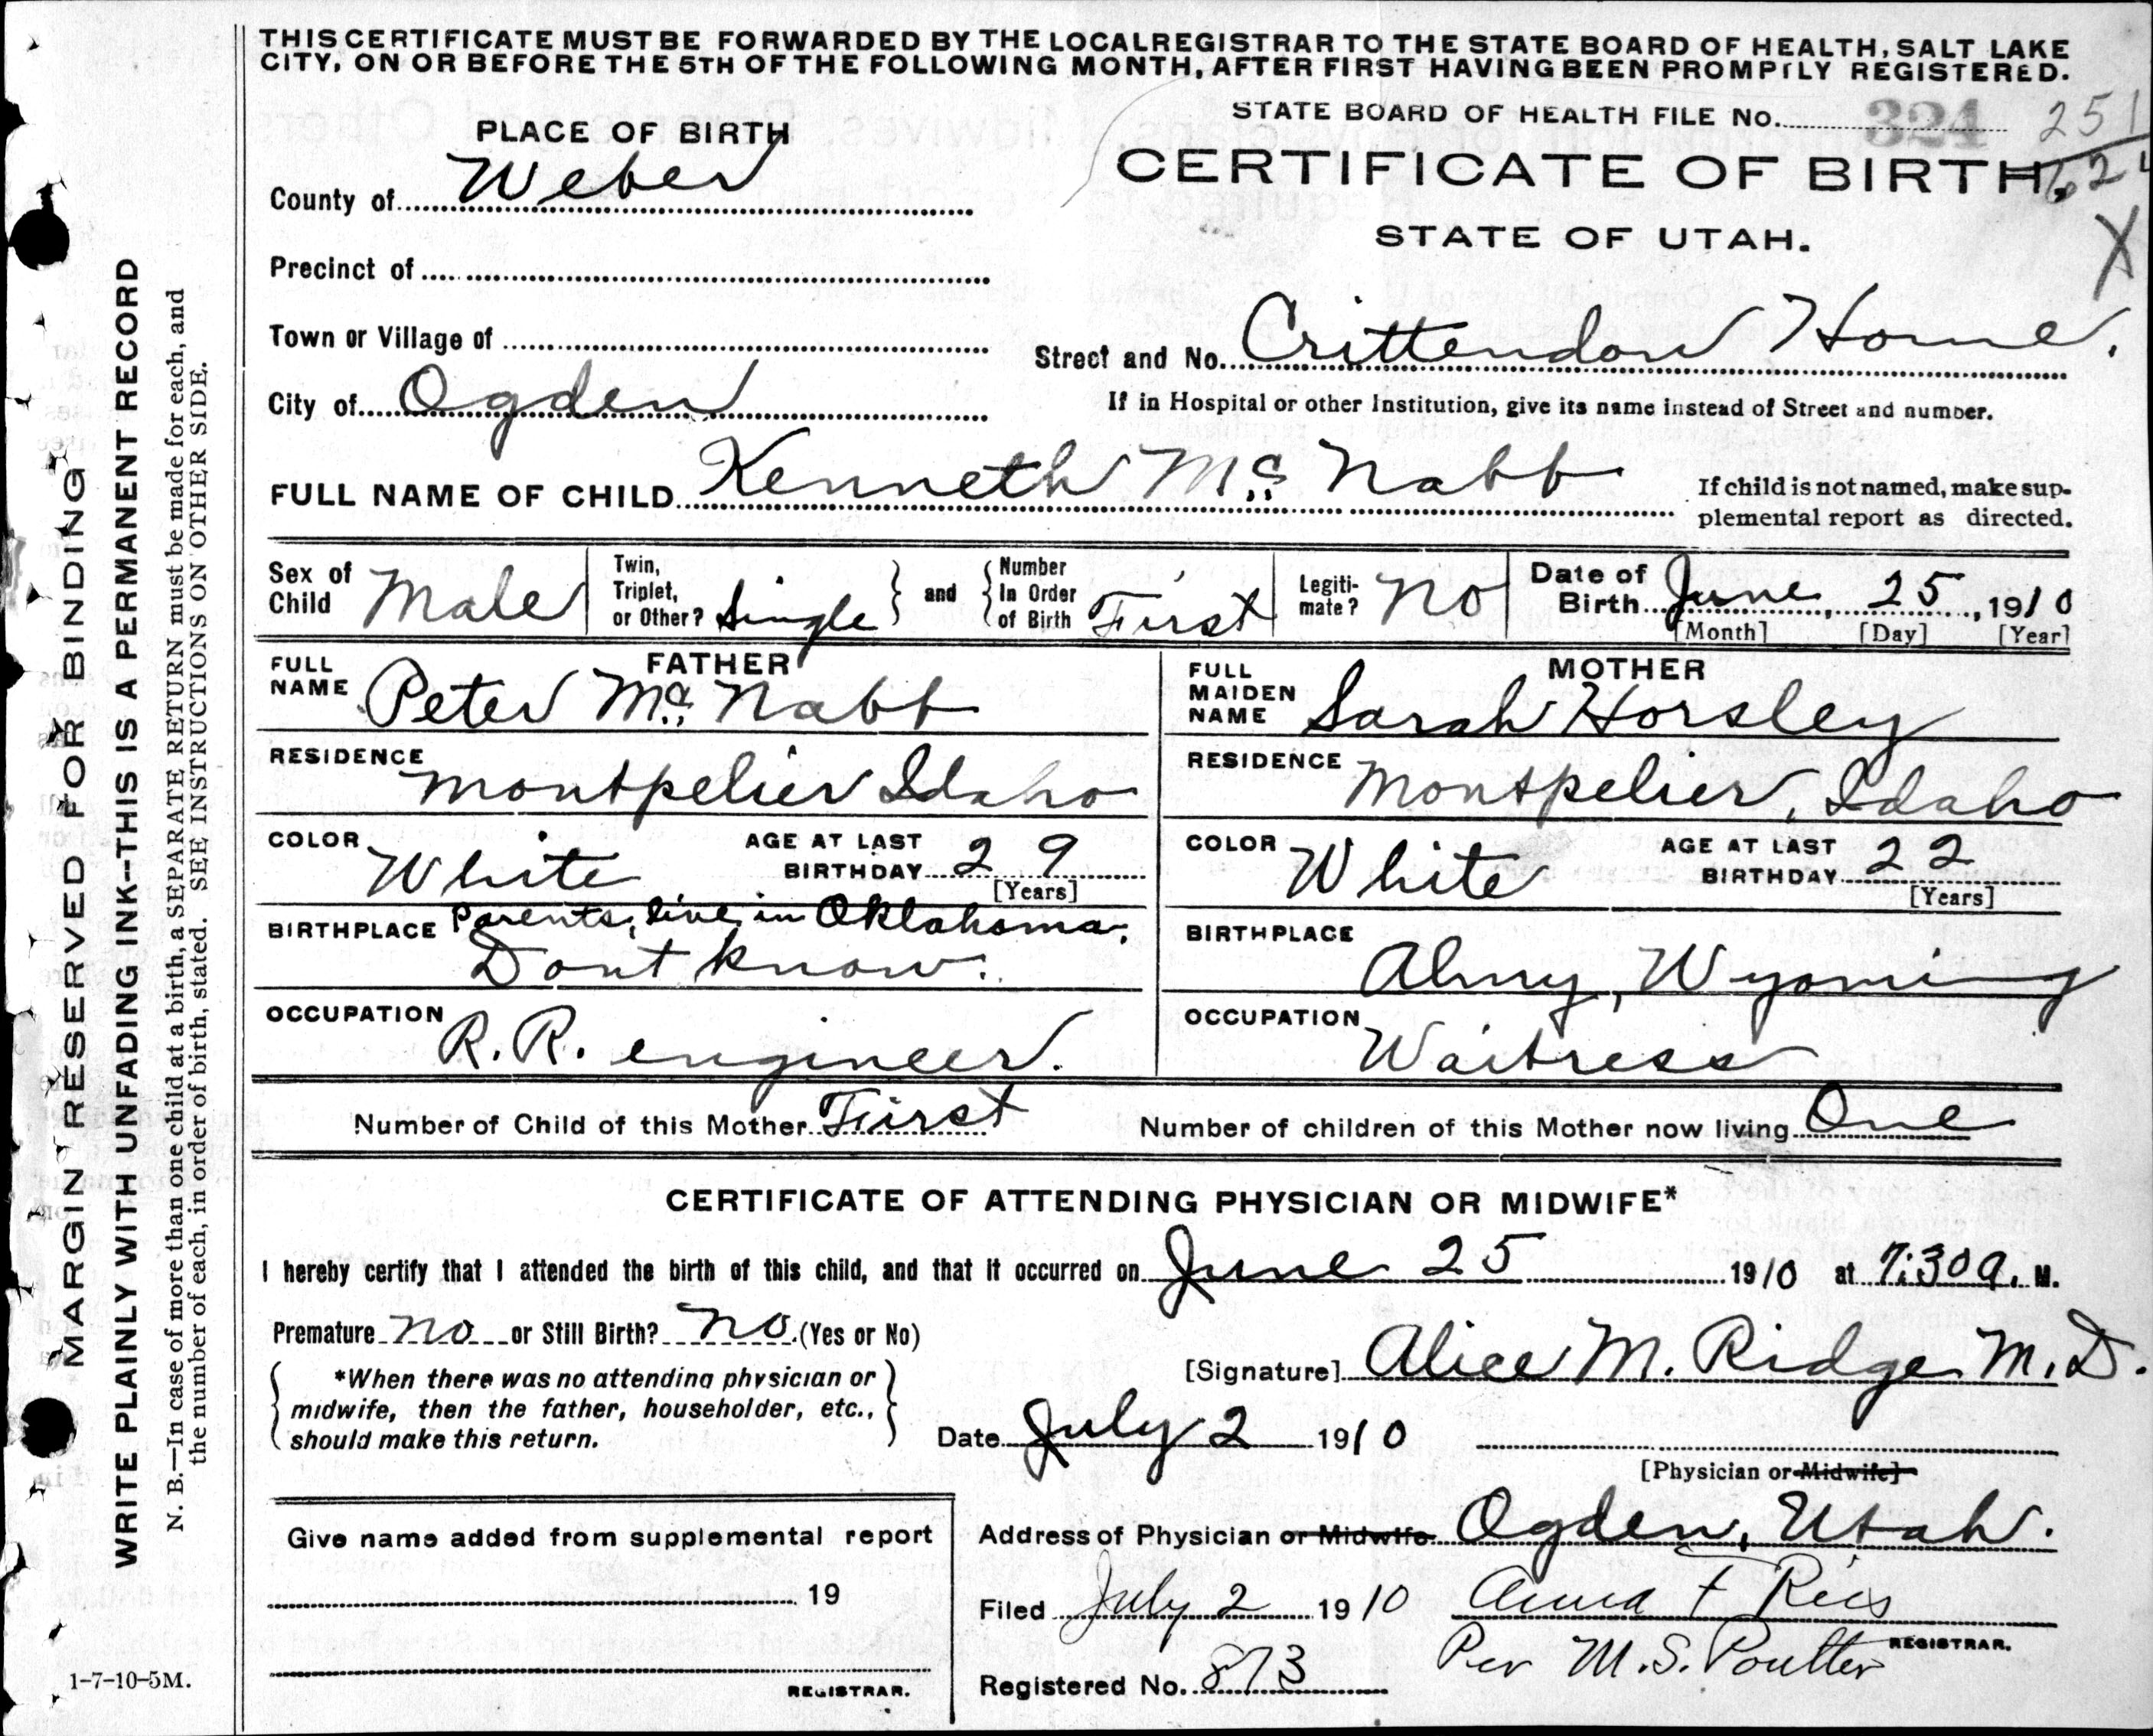 THIS CERTIFICATE MUST BE FORWARDED BY THE LOCAL REGISTRAR TO THE STATE BOARD OF HEALTH, SALT LAKE
CITY, ON OR BEFORE THE 5TH OF THE FOLLOWING MONTH, AFTER FIRST HAVING BEEN PROMPTLY REGISTERED.
STATE BOARD OF HEALTH FILE No. 324 251
PLACE OF BIRTH
CERTIFICATE OF BIRTH.
County of Weber
STATE OF UTAH.
X
Precinct of
Town or Village of
Street and No. Crittendon Home.
City of Ogden
If in Hospital or other Institution, give its name instead of Street and number.
FULL NAME OF CHILD Kenneth Mc Nabb
If child is not named, make sup-
plemental report as directed.
Sex of Child Male
Twin, Triplet, or Other? Single and Number In Order of Birth First
Legiti-mate? No
Date of Birth June, 25, 1910
[Month] [Day] [Year]
FATHER
FULL NAME Peter Mc Nabb
RESIDENCE Montpelier Idaho
COLOR White AGE AT LAST BIRTHDAY 29
[Years]
BIRTHPLACE Parents, live in Oklahoma,
Dont know.
OCCUPATION R.R. engineer.
MOTHER
FULL MAIDEN NAME Sarah Horsley
RESIDENCE Montpelier, Idaho
COLOR White AGE AT LAST BIRTHDAY 22
[Years]
BIRTHPLACE Almy, Wyoming
OCCUPATION Waitress
Number of Child of this Mother First Number of children of this Mother now living One
CERTIFICATE OF ATTENDING PHYSICIAN OR MIDWIFE*
I hereby certify that I attended the birth of this child, and that it occurred on June 25 1910 at 7:30 a. M.
Premature no or Still Birth? no. (Yes or No)
[Signature] Alice M. Ridge M.D.
*When there was no attending physician or
midwife, then the father, householder, etc.,
should make this return.
Date July 2 1910
[Physician or Midwife]
Give name added from supplemental report
19
REGISTRAR.
Address of Physician or Midwife Ogden, Utah.
Filed July 2 1910 Anna F Ries
REGISTRAR.
Per M.S. Poulter
Registered No. 873
1-7-10-5M.
MARGIN RESERVED FOR BINDING
WRITE PLAINLY WITH UNFADING INK--THIS IS A PERMANENT RECORD
N. B.—In case of more than one child at a birth, a SEPARATE RETURN must be made for each, and
the number of each, in order of birth, stated. SEE INSTRUCTIONS ON OTHER SIDE.